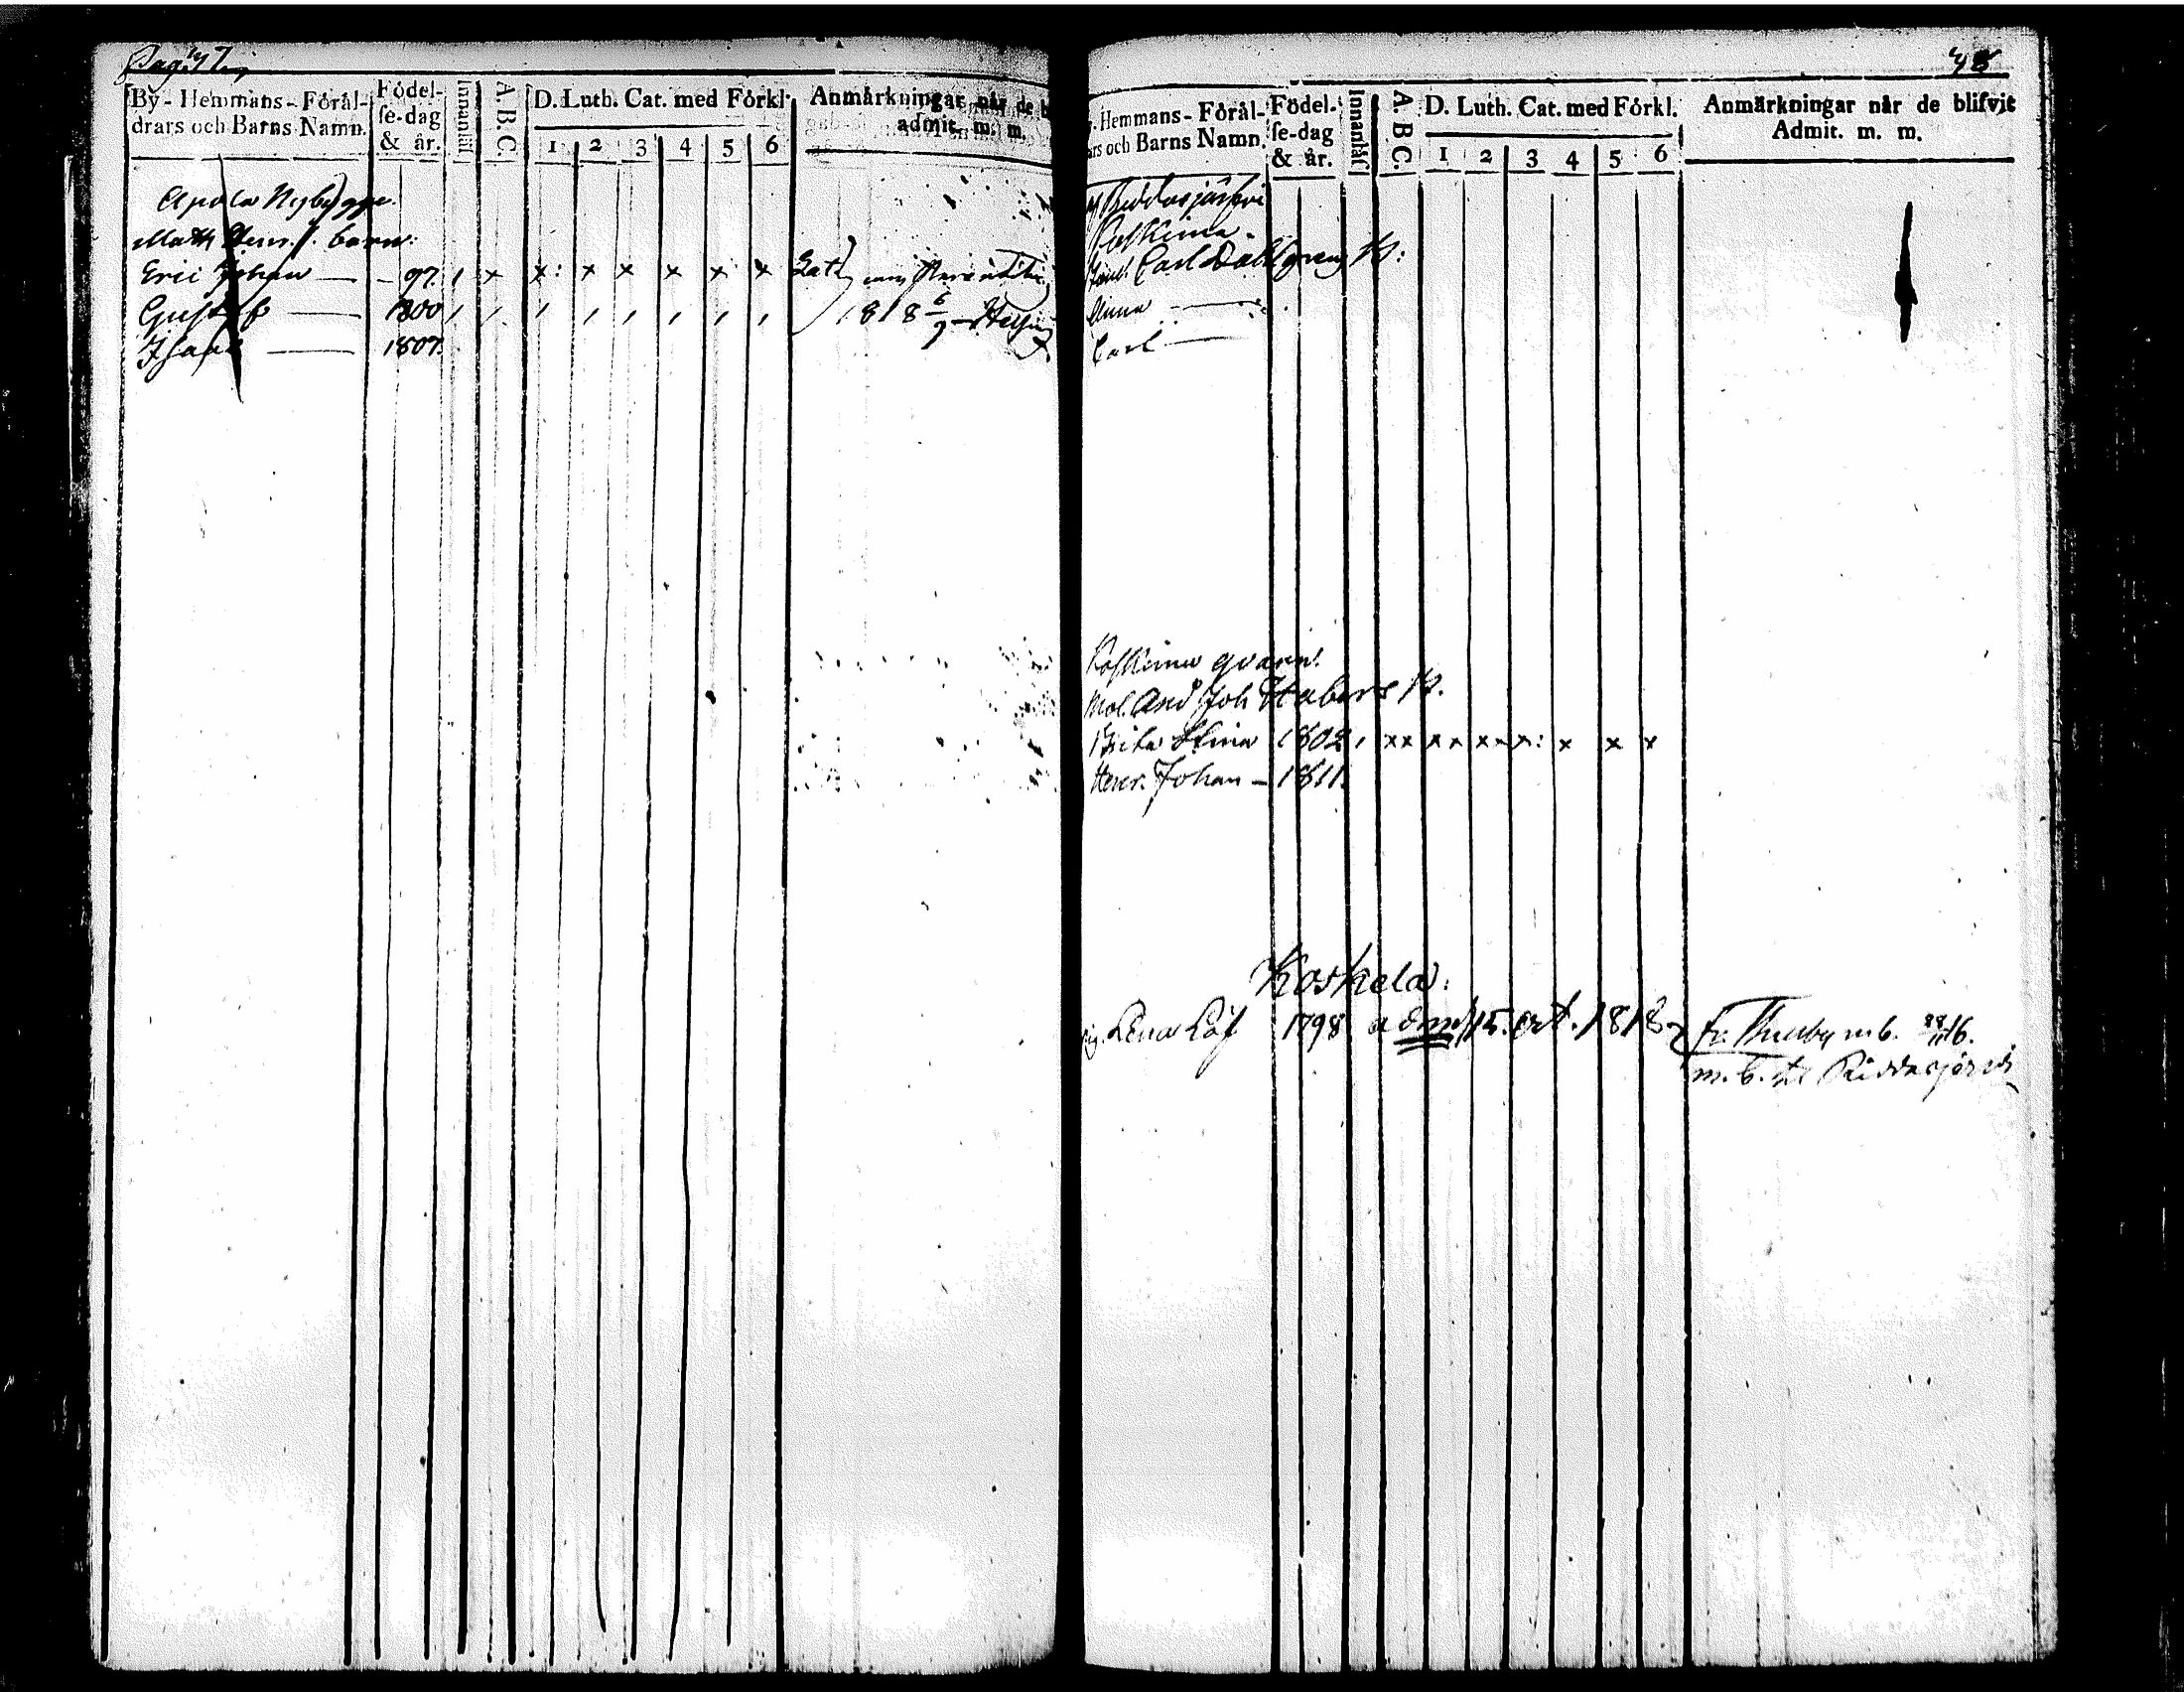 Pag. 47.
By-Hemmans-Föräl-
drars och Barns Namn.
Födel-
se-dag
& år.
Innantill
A. B. C.
D. Luth. Cat. med Förkl.
1 2 3 4 5 6
Anmärkningar når de b
admit. m. m.
Nybygge
Math Henr. s. barn:
Eric Johan — – 97. , x x: x x x x x
Gustaf — 1800 , , , , , , , , 1818 6/9
Isaac — 1807.
48
Hemmans-Föräl-
ars och Barns Namn.
Födel-
se-dag
& år.
Innantill
A. B C.
D. Luth. Cat. med Förkl.
1 2 3 4 5 6
Anmärkningar når de blifvit
Admit. m. m.
Riddasjärfvi
Koskima.
Carl Dahlgrens
Anna —
Carl —
Koskima qvarn.
Mol. And Joh
Brita Stina 1802 , xx xx xx x: x x x
Henr. Johan – 1811.
Koskela:
Lena Löf 1798 adm. 15. oct. 1818. fr. Thusby m b. 16.
m. b. til Riddasjärvi